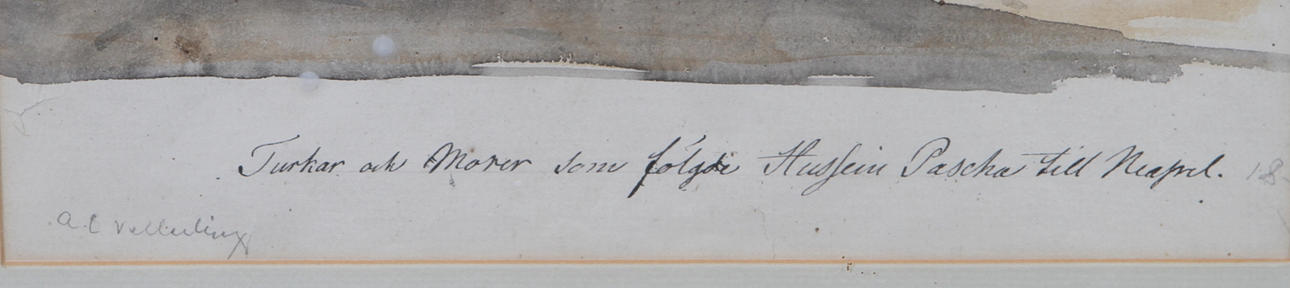 Turkar och Morer som följde Hussein Pascha till Neapel. 18
A. C Vetterling